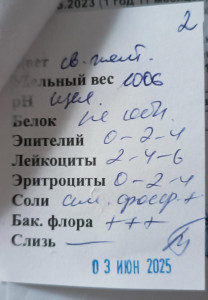 .2023 (1 год 11 м
2
вет св. желт.
ельный вес 1006
рН щел.
Белок не обн.
Эпителий 0-2-4
Лейкоциты 2-4-6
Эритроциты 0-2-4
Соли ам. фосф +
Бак. флора +++
Слизь —
03 ИЮН 2025